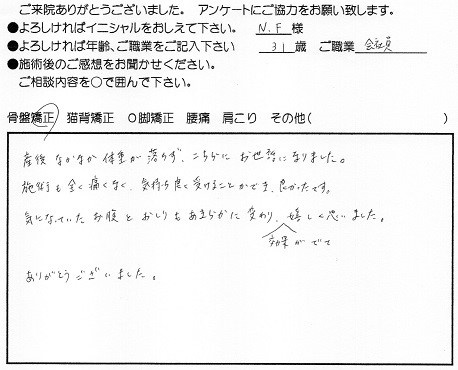 ご来院ありがとうございました。 アンケートにご協力をお願い致します。
●よろしければイニシャルをおしえて下さい。 N.F 様
●よろしければ年齢、ご職業をご記入下さい 31 歳 ご職業 会社員
●施術後のご感想をお聞かせください。
ご相談内容を○で囲んで下さい。
骨盤矯正 猫背矯正 O脚矯正 腰痛 肩こり その他( )
産後 なかなか 体重が 落ちず、こちらに お世話になりました。
施術も 全く痛くなく、気持ち良く受けることができ、良かったです。
気になっていた お腹と おしりも あきらかに 変わり、嬉しく思いました。
効果がでて
ありがとうございました。